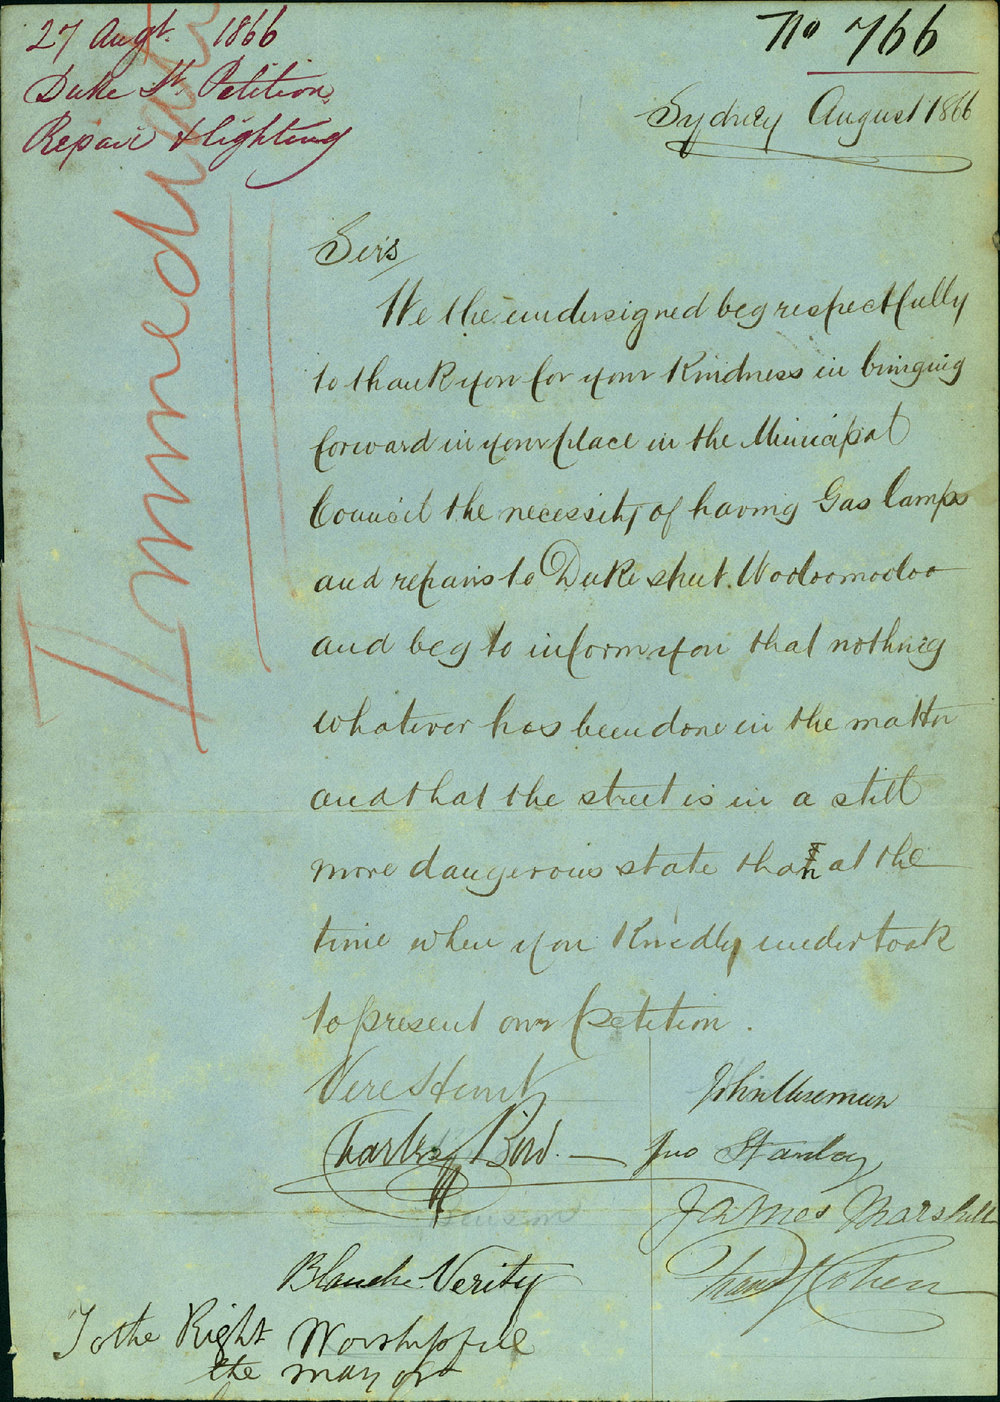 27 Augt. 1866
Duke St. Petition
Repair & lighting
No 766
Immediate
Sydney August 1866
Sirs
We the undersigned beg respectfully
to thank you for your kindness in bringing
forward in your place in the Municipal
Council the necessity of having Gas lamps
and repairs to Duke street Wooloomooloo
and beg to inform you that nothing
whatever has been done in the matter
and that the street is in a still
more dangerous state than at the
time when you kindly undertook
to present our petition.
Vere Hunt
John
Charles Bird
Jno Stanley
James Marshall
Blanche Verity
Cohen
To the Right Worshipful
the mayor